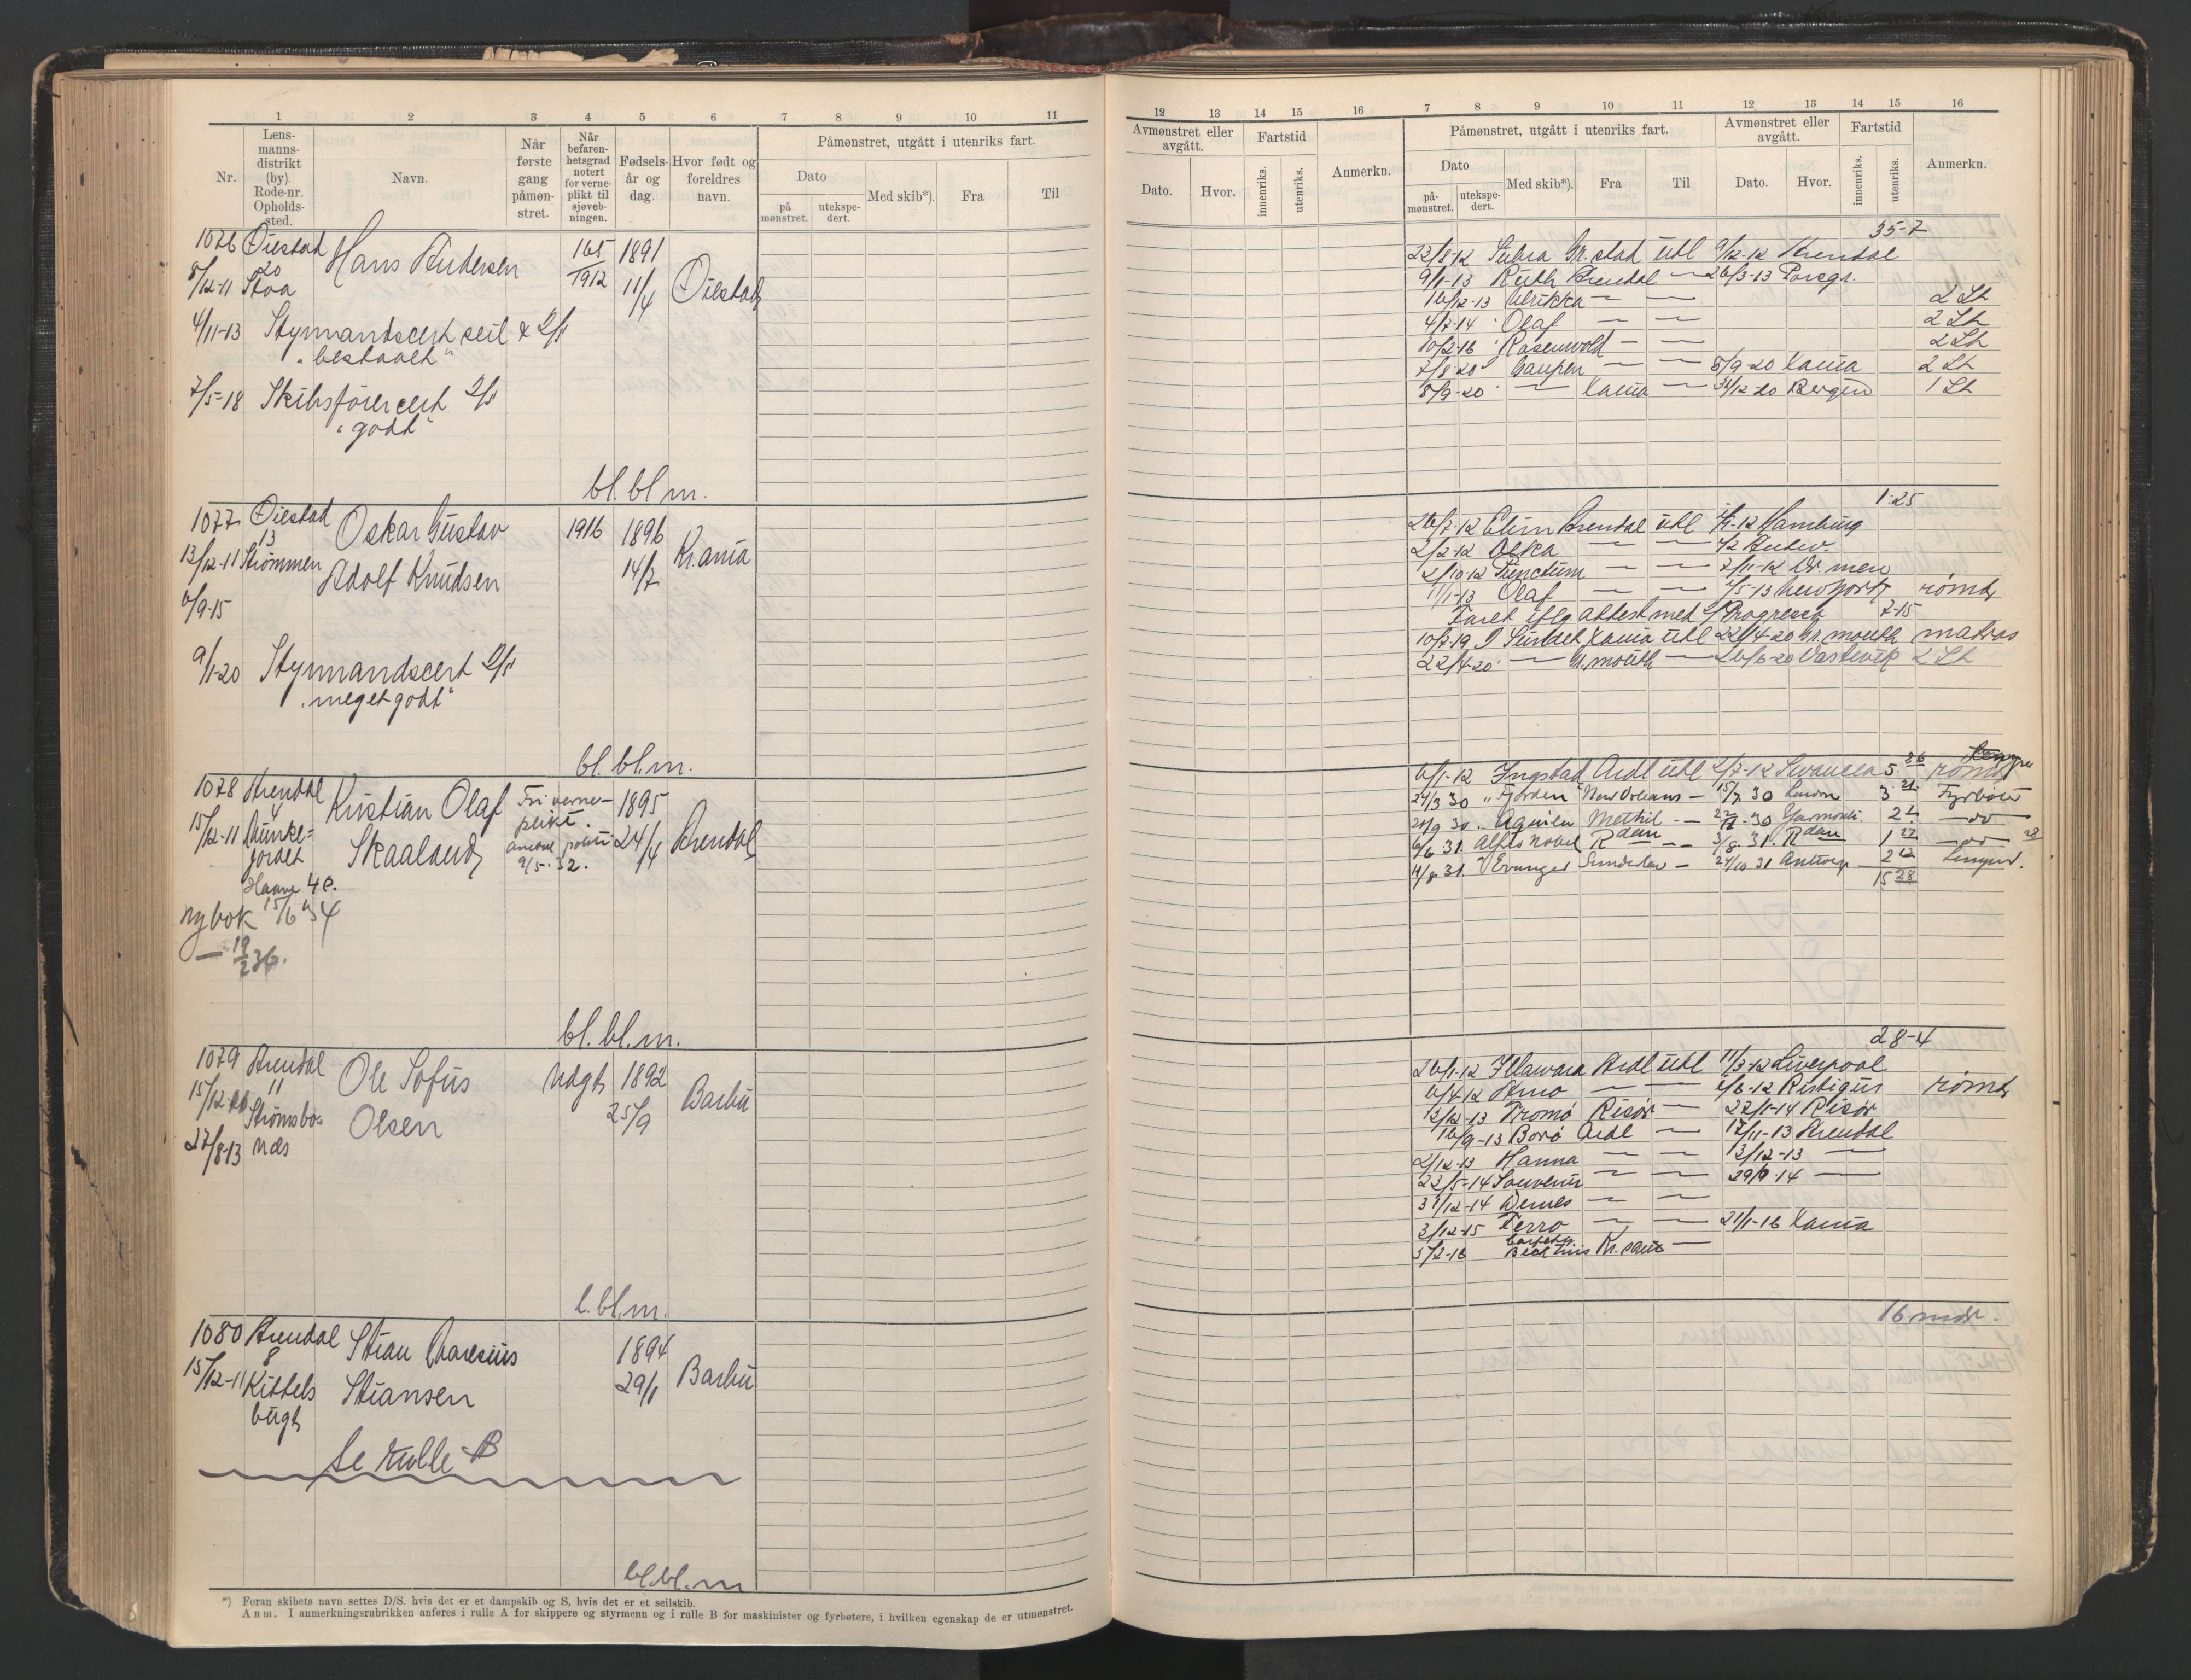 1 2 3 4 5 6 7 8 9 10 11
Nr.
Lens-
manns-
distrikt
(by).
Rode-nr.
Opholds-
sted.
Navn.
Når
første
gang
påmøn-
stret.
Når
befaren-
hetsgrad
notert
for verne-
plikt til
sjøveb-
ningen.
Fødsels-
år og
dag.
Hvor født og
foreldres
navn.
Påmønstret, utgått i utenriks fart.
Dato
på
mønstret.
utekspe-
dert.
Med skib*).
Fra
Til
1076 Øiestad Hans Andersen 165/1912 1891
20
8/12-11 Stoa 11/4 Øiestad
4/11-13 Styrmandscert seil & D/s
"bestaaet"
7/5-18 Skibsførercert D/s
"godt"
bl. bl m.
1077 Øiestad Oskar Gustav 1916 1896
13
13/12-11 Strømmen Adolf Knudsen 14/7 Kr.ania
6/9-15
9/1-20 Styrmandscert D/s
"meget godt"
bl. bl. m.
1078 Arendal Kristian Olaf Fri verne- 1895
4 plikt.
15/12-11 Munke- Skaaland Arendal politi 24/4 Arendal
jordet 9/5-32.
Haave 4 e.
ny bok 15/6 34
— 19/2 36.
bl. bl. m.
1079 Arendal Ole Sofus Udygt 1892
11
15/12-11 Strømsbo- Olsen 25/9 Barbu
27/8-13 næs
l. bl. m.
1080 Arendal Stian 1894
8
15/12-11 Kittels Stiansen 29/1 Barbu
bugt
Se rulle B
bl. bl. m
*) Foran skibets navn settes D/S, hvis det er et dampskib og S, hvis det er et seilskib.
Anm. I anmerkningsrubrikken anføres i rulle A for skippere og styrmenn og i rulle B for maskinister og fyrbøtere, i hvilken egenskap de er utmønstret.
12 13 14 15 16 7 8 9 10 11 12 13 14 15 16
Avmønstret eller
avgått.
Dato.
Hvor.
Fartstid
innenriks.
utenriks.
Anmerkn.
Påmønstret, utgått i utenriks fart.
Dato
på-
mønstret.
utekspe-
dert.
Med skib*).
Fra
Til
Avmønstret eller
avgått.
Dato.
Hvor.
Fartstid
innenriks.
utenriks.
Anmerkn.
35-7
22/8-12 Gr.stad utl 9/12-12 Arendal
9/1-13 Ruth Arendal — 26/3-13 Porsgr.
16/12-13 Ulrikka — — 2 St
4/7-14 Olaf — — 2 St
10/2-16 Rosenvold — — 2 St
7/8-20 Gaupen — — 8/9-20 Xania 2 St
8/9-20 — Xania — 31/12-20 Bergen 1 St
1-25
26/7-12 Elim Arendal utl 12 Hamburg
2/2-12 — — Antw.
2/10-12 Punctum — — 2/11-12 Dr.men
1/1-13 Olaf — — 5-13 Newport rømt
Faret iflg attest med S/ Progress 7-15
10/7-19 Xania utl 22/4-20 Gr.mouth matros
22/4-20 — Gr.mouth — 26/6-20 Vastevik 2 St
6/1-12 Ingstad Ardl utl 2/7-12 Swansea 5.26 rømt
24/3 30 "Fjorden" New Orleans — 15/7 30 London 3 21 Fyrbøter
24/9 30 Aguila Methil — 30 Yarmouth. 2 — do —
6/6 31 Alfred Nobel Rdam — 3/8 31. Rdam 1 27 — do —
11/8 31. Evanger Sunderland — 24/10 31 Antwerp 2 12 Lemper.
15 28
28-4
26/1-12 Illawara Ardl utl 11/3-12 Liverpool
6/4-12 Arno — — 6-12 Ristigus rømt
12/12-13 Tromø Risør — 22/1-14 Risør
16/9-13 Borø Ardl — 17/11-13 Arendal
2/12-13 Hanna — — 12/12-13 —
23/5-14 Souvenir — — 29/9-14 —
31/12-14 — —
3/12-15 Ferro — — 21/1-16 Xania
5/2-16 Kr.sand —
16 mdr.